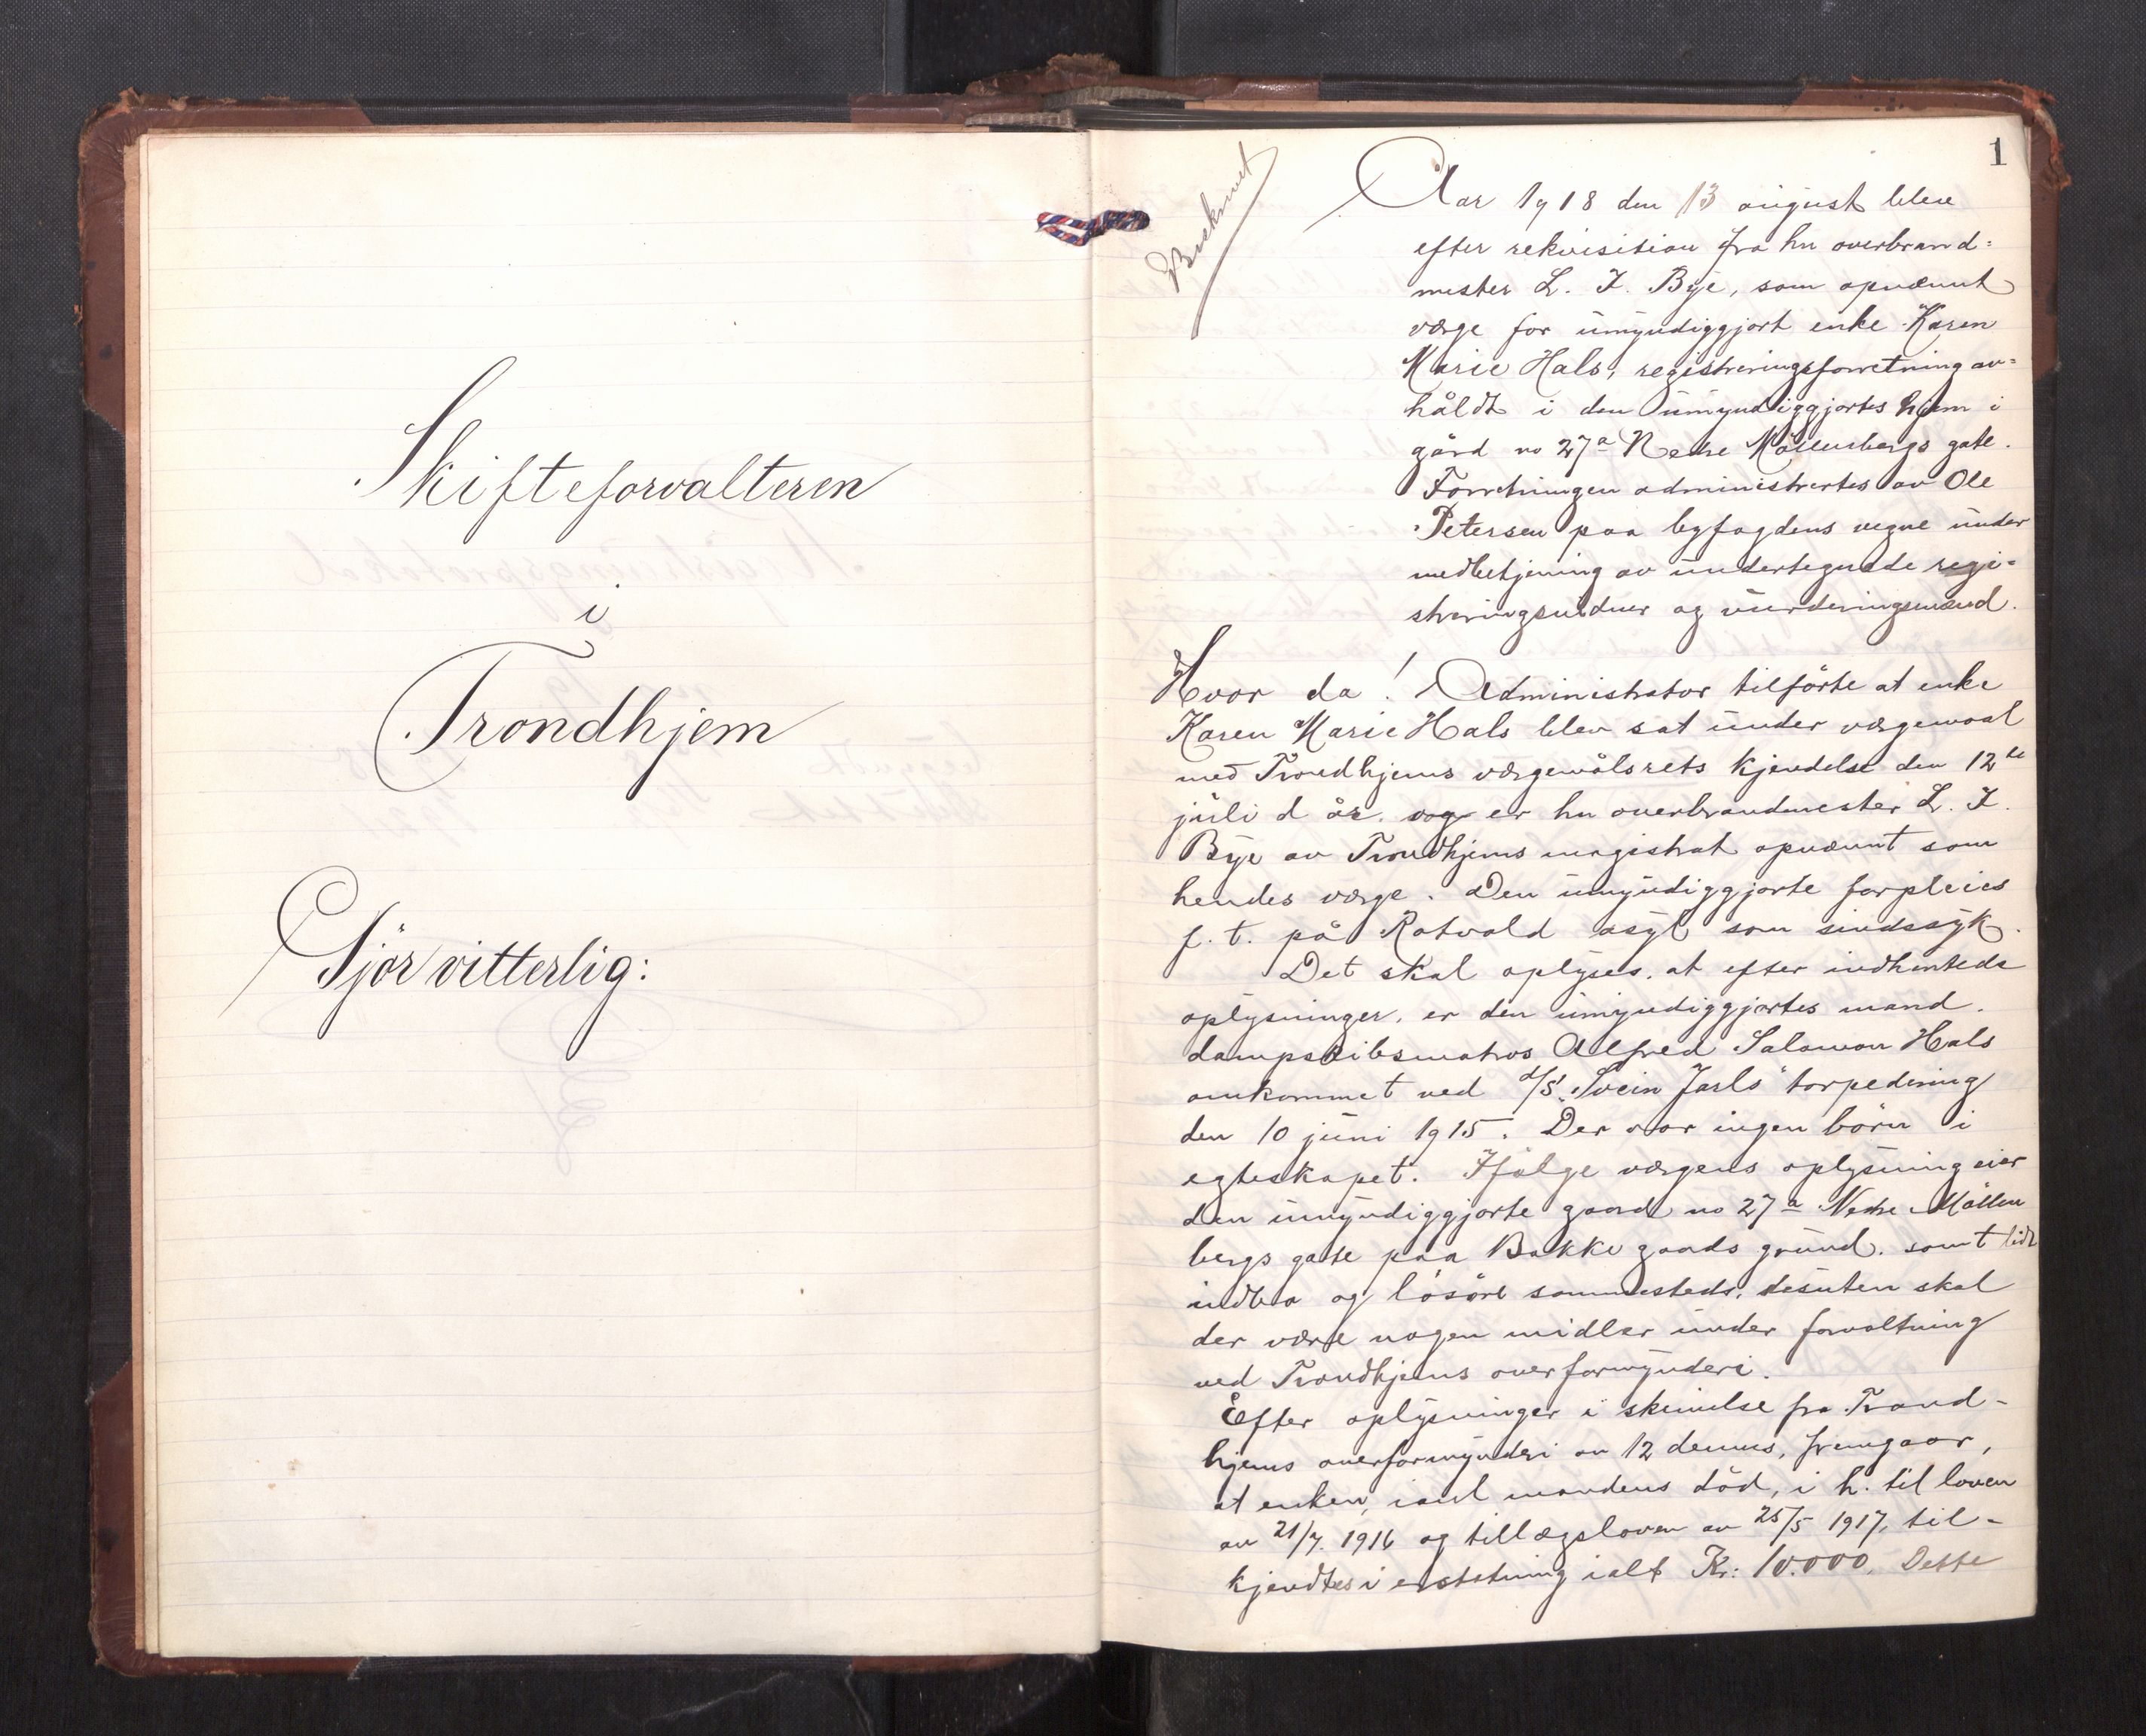 Skifteforvalteren
i
Trondhjem
Gjör vitterlig:
1
Beskrevet
Aar 1918 den 13 august blev
efter rekvisition fra hr overbrand=
mester L. I. Bye, som opnævnt
værge for umyndiggjort enke Karen
Marie Hals, registreringsforretning av=
håldt i den umyndiggjortes hjem i
gård no 27a Nedre Möllenbergs gate.
Forretningen administrertes av Ole
Petersen paa byfogdens vegne under
medbetjening av undertegnede regi=
streringsvidner og vurderingsmænd.
Hvor da! Administrator tilförte at enke
Karen Marie Hals blev sat under værgemaal
med Trondhjems værgemålsrets kjendelse den 12te
juli d år. og er hr overbrandmester L. I.
Bye av Trondhjems magistrat opnævnt som
hendes værge. Den umyndiggjorte forpleies
f. t. på Rotvold asyl som sindssyk.
Det skal oplyses, at efter indhentede
oplysninger, er den umyndiggjortes mand.
dampskibsmatros Alfred Salomon Hals
omkommet ved d/s "Svein Jarls" torpedering
den 10 juni 1915. Der var ingen börn i
egteskapet. Ifölge værgens oplysning eier
den umyndiggjorte gaard no 27a Nedre Möllen
bergs gate paa Bakke gaards grund. samt lidt
indbo og lösöre sammesteds, desuten skal
der være nogen midler under forvaltning
ved Trondhjems overformynderi.
Efter oplysninger i skrivelse fra Trond-
hjems overformynderi av 12 dennes, fremgaar,
at enken, i anl mandens död, i h. til loven
av 21/7. 1916 og tillægsloven av 25/5 1917, til-
kjendtes i erstatning ialt Kr: 10.000. Dette